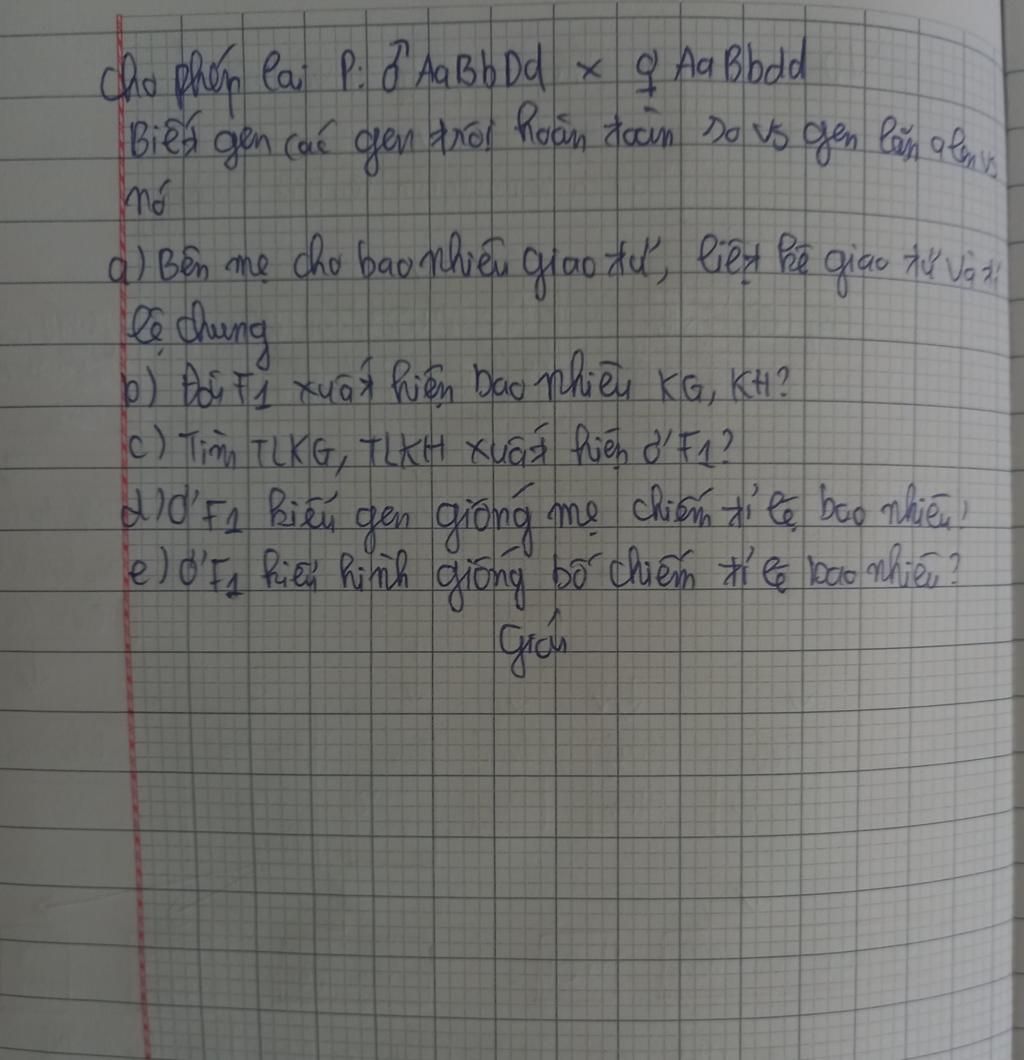 Cho phép lai P: ♂ AaBbDd x ♀ AaBbdd
Biết gen các gen trội hoàn toàn so vs gen lặn alen vs
nó
a) Bên mẹ cho bao nhiêu giao tử, liệt kê giao tử và tỉ
lệ chung
b) Đời F1 xuất hiện bao nhiêu KG, KH?
c) Tìm TLKG, TLKH xuất hiện ở F1?
d) Ở F1 kiểu gen giống mẹ chiếm tỉ lệ bao nhiêu?
e) Ở F1 kiểu hình giống bố chiếm tỉ lệ bao nhiêu?
Giải